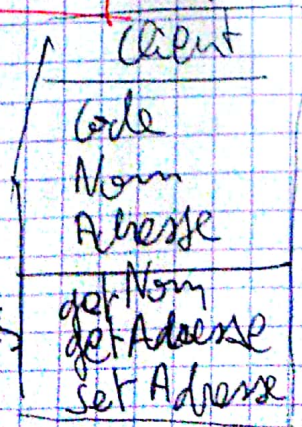 Client
Code
Nom
Adresse
getNom
getAdresse
setAdresse